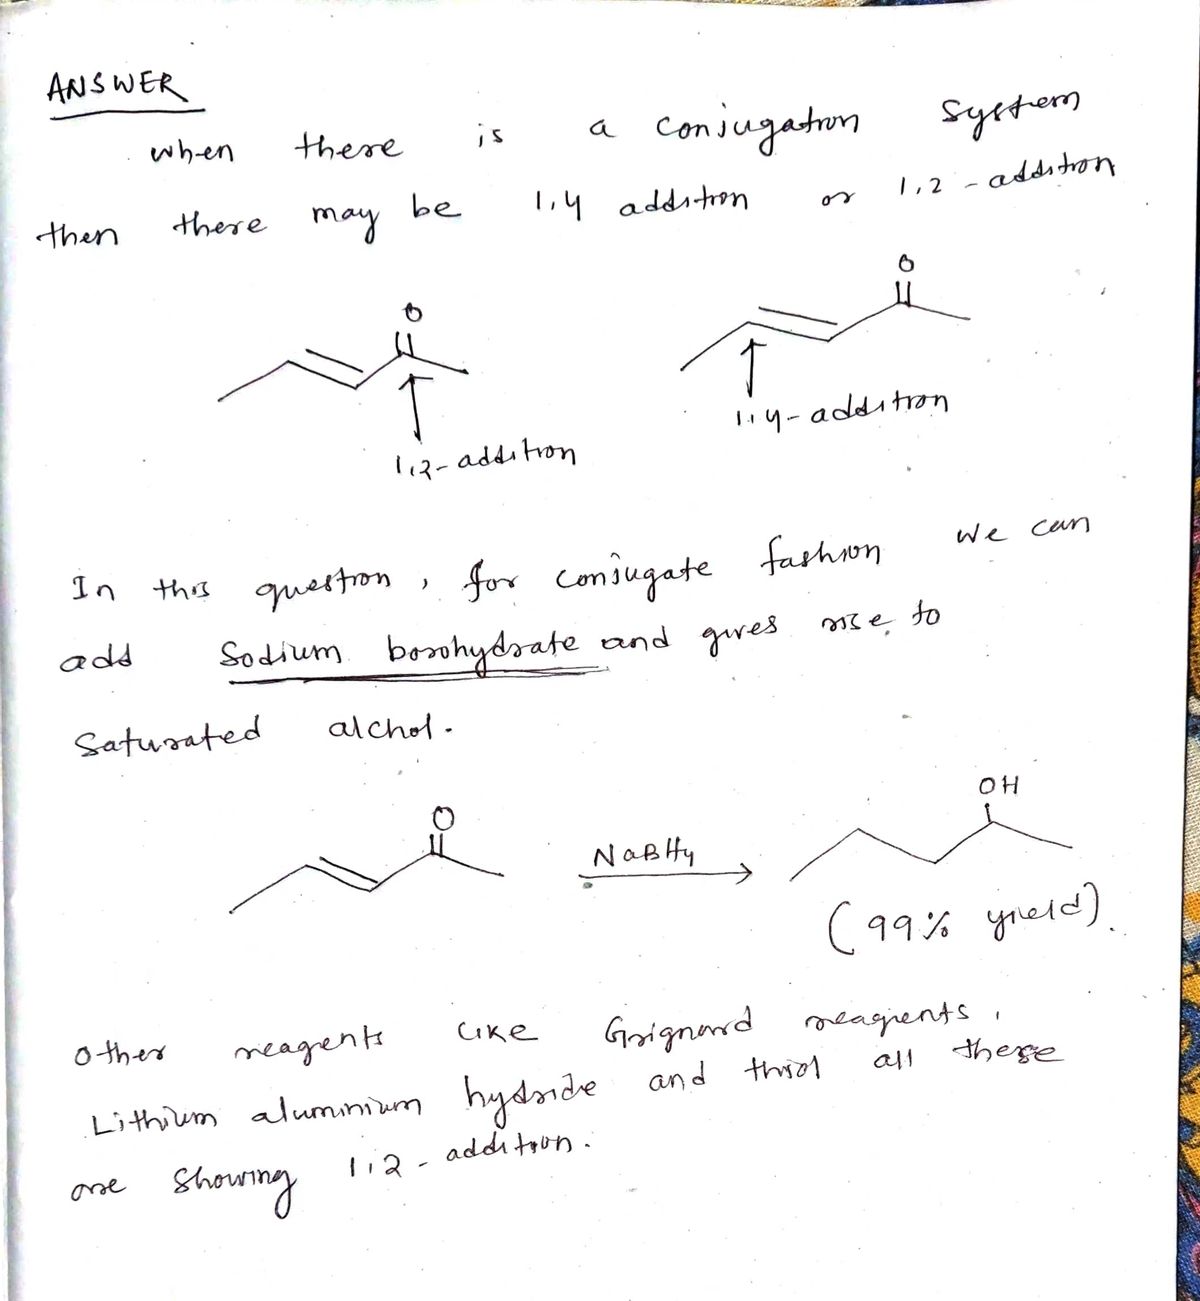 ANSWER
when there is a conjugation system
then there may be 1,4 addition or 1,2 - addition
O O
1,2- addition 1,4- addition
In this question, for conjugate fashion we can
add Sodium borohydrate and gives rise to
Saturated alchol.
O NaBH4 OH
(99% yield).
Other reagents like Grignard reagents,
Lithium aluminium hydride and thiol all these
are showing 1,2 - addition.